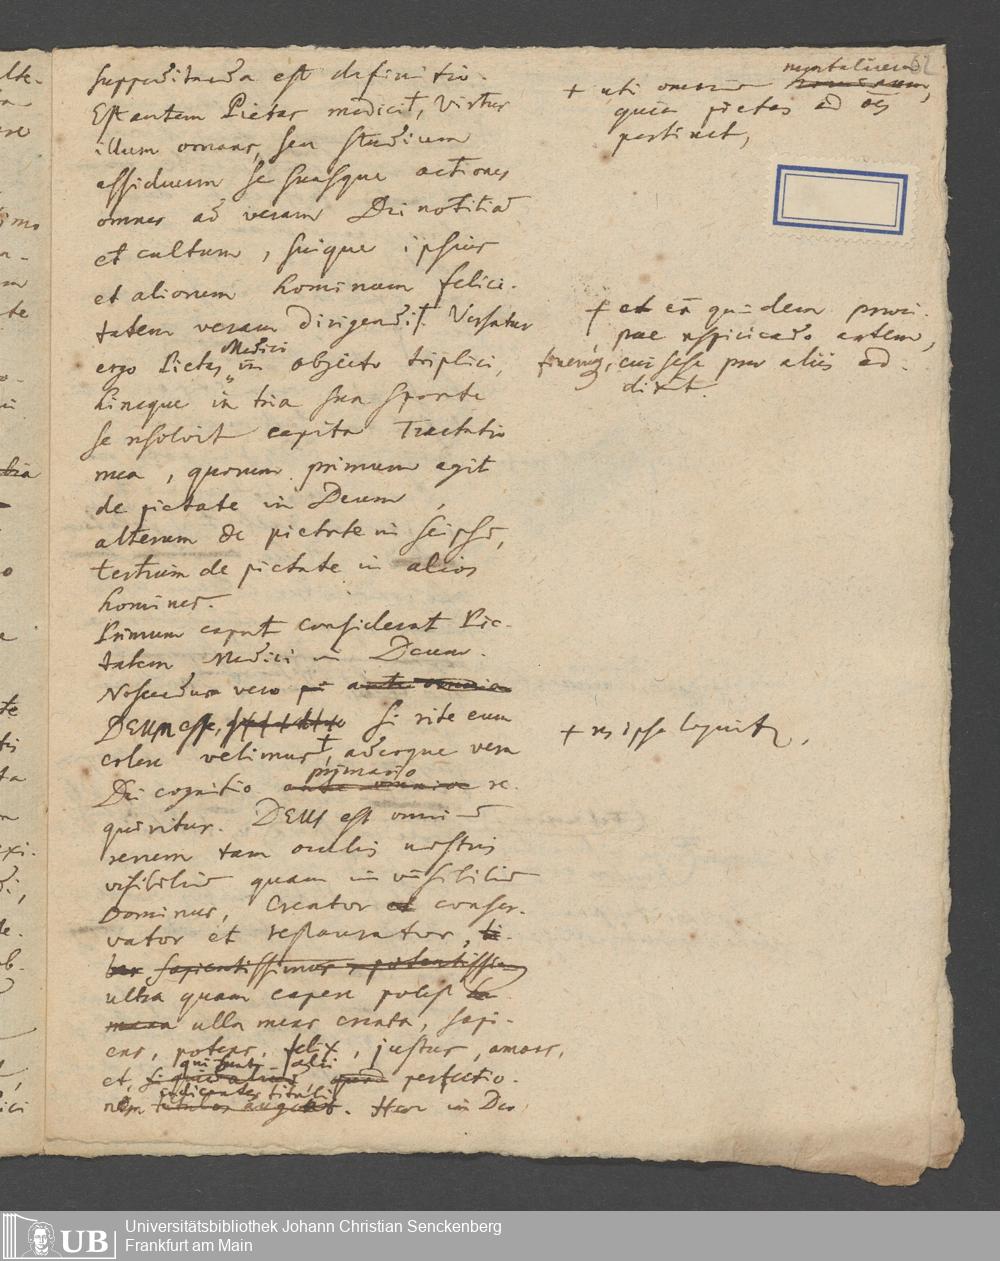 suppeditanda est definitio.
Est autem Pietas medici †, Virtus
illum ornans, seu studium
assiduum se suasque actiones
omnes ad veram Dei notitiā
et cultum, suique ipsius
et aliorum hominum felici-
tatem veram dirigendi †. Versatur
ergo Pietas Medici in objecto triplici,
hincque in tria sua sponte
se resolvit capita Tractatio
mea, quorum primum agit
de pietate in Deum,
alterum de pietate in seipsū,
tertium de pietate in alios
homines.
Primum caput considerat Pie-
tatem Medici in Deum.
Noscendum vero ante omnia
DEUM esse, si rite eum
colere velimus †, adeoque vera
Dei cognitio ante omnia primario re-
quiritur. DEUS est omniū
rerum tam oculis nostris
visibiliū quam invisibiliū
Dominus, Creator et conser-
vator et restaurator,
sapientissimus, potentissimus
ultra quam capere potest
ulla mens creata, sapi-
ens, potens, felix, justus, amans,
et, qui sunt alii perfectio-
nem indicantes tituli. Hoc in Deo
+ uti omnium hominum mortalium,
quia pietas ad oēs
pertinet,
† et eā quidem praeci-
pue respiciendo artem,
cui sese prae aliis ad-
dixit.
+ res ipsa loquitur,
62
Universitätsbibliothek Johann Christian Senckenberg
Frankfurt am Main
UB